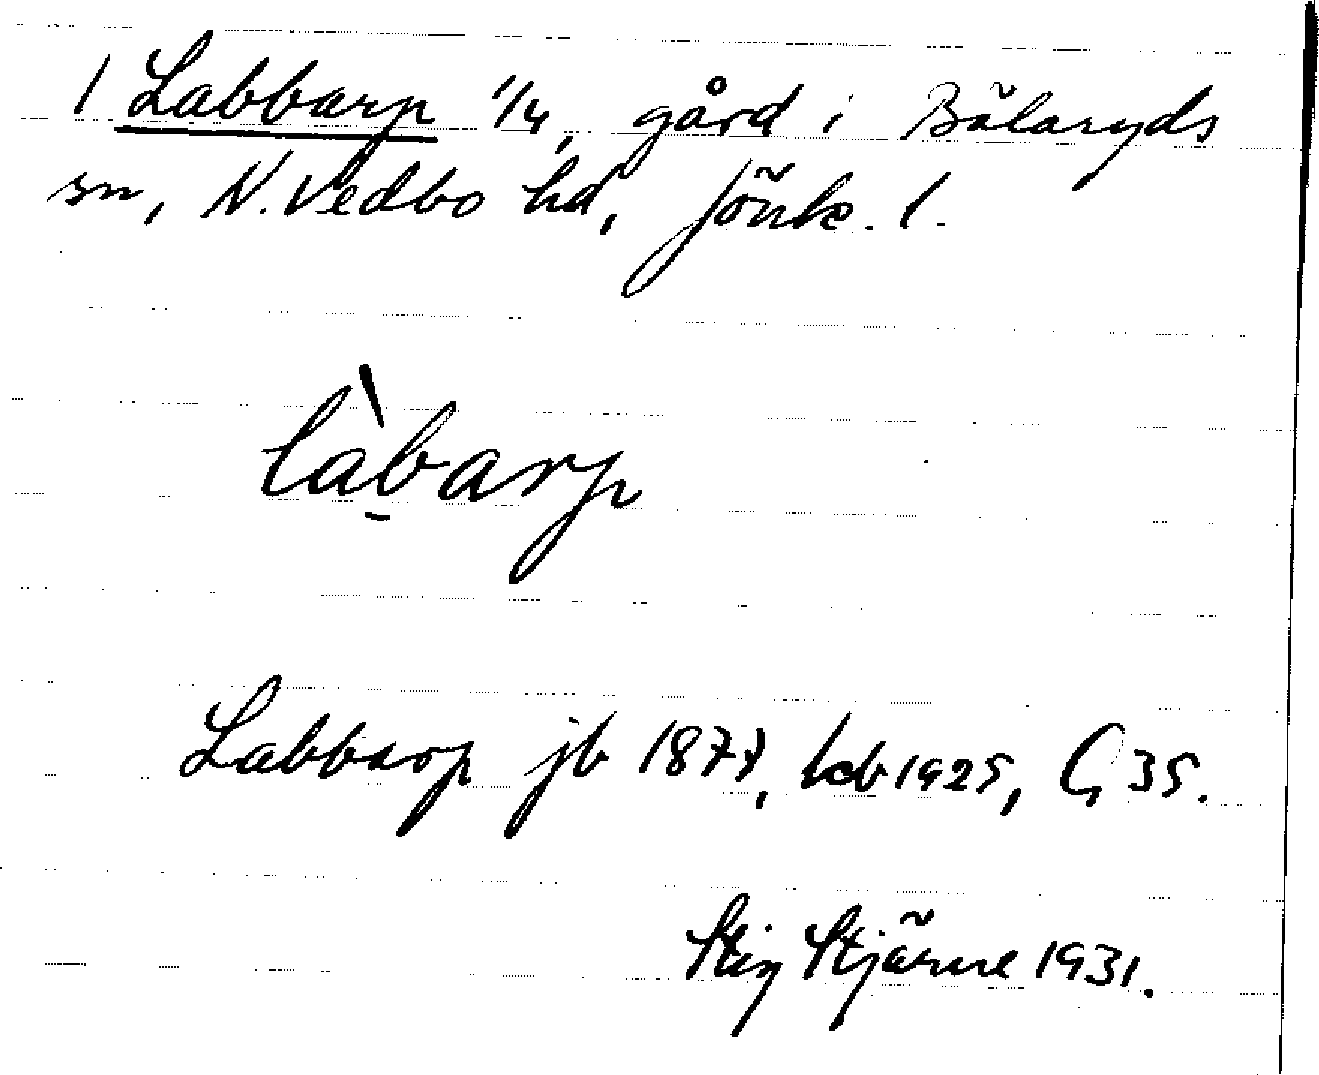 1 Labbarp 1/4, gård i Bälaryds
sn, N. Vedbo hd, Jönk. l.
làb̲arp
Labbarp jb 1877, kdb 1925, G 35.
Stig Stjärne 1931.